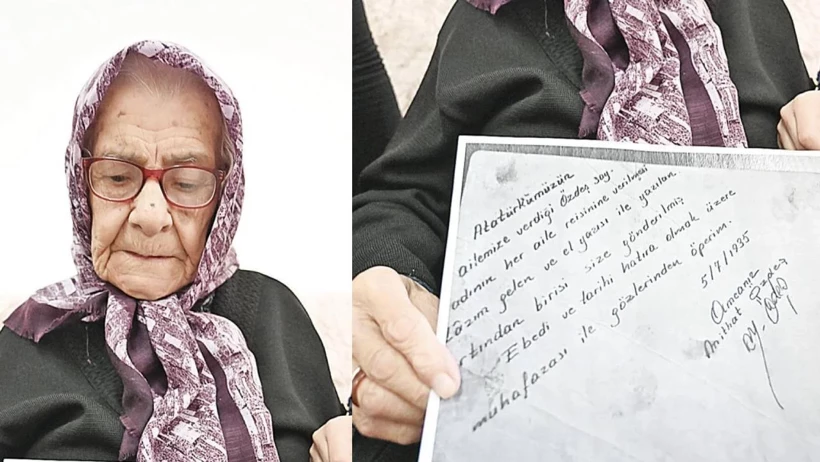 Atatürkümüzün
ailemize verdiği Özdeş soy-
adının her aile reisinine verilmesi
lâzım gelen ve el yazısı ile yazılan
artından birisi size gönderilmiş
Ebedî ve tarihî hatıra olmak üzere
muhafazası ile gözlerinden öperim.
5/7/1935
Amcanız
Mithat Özdeş